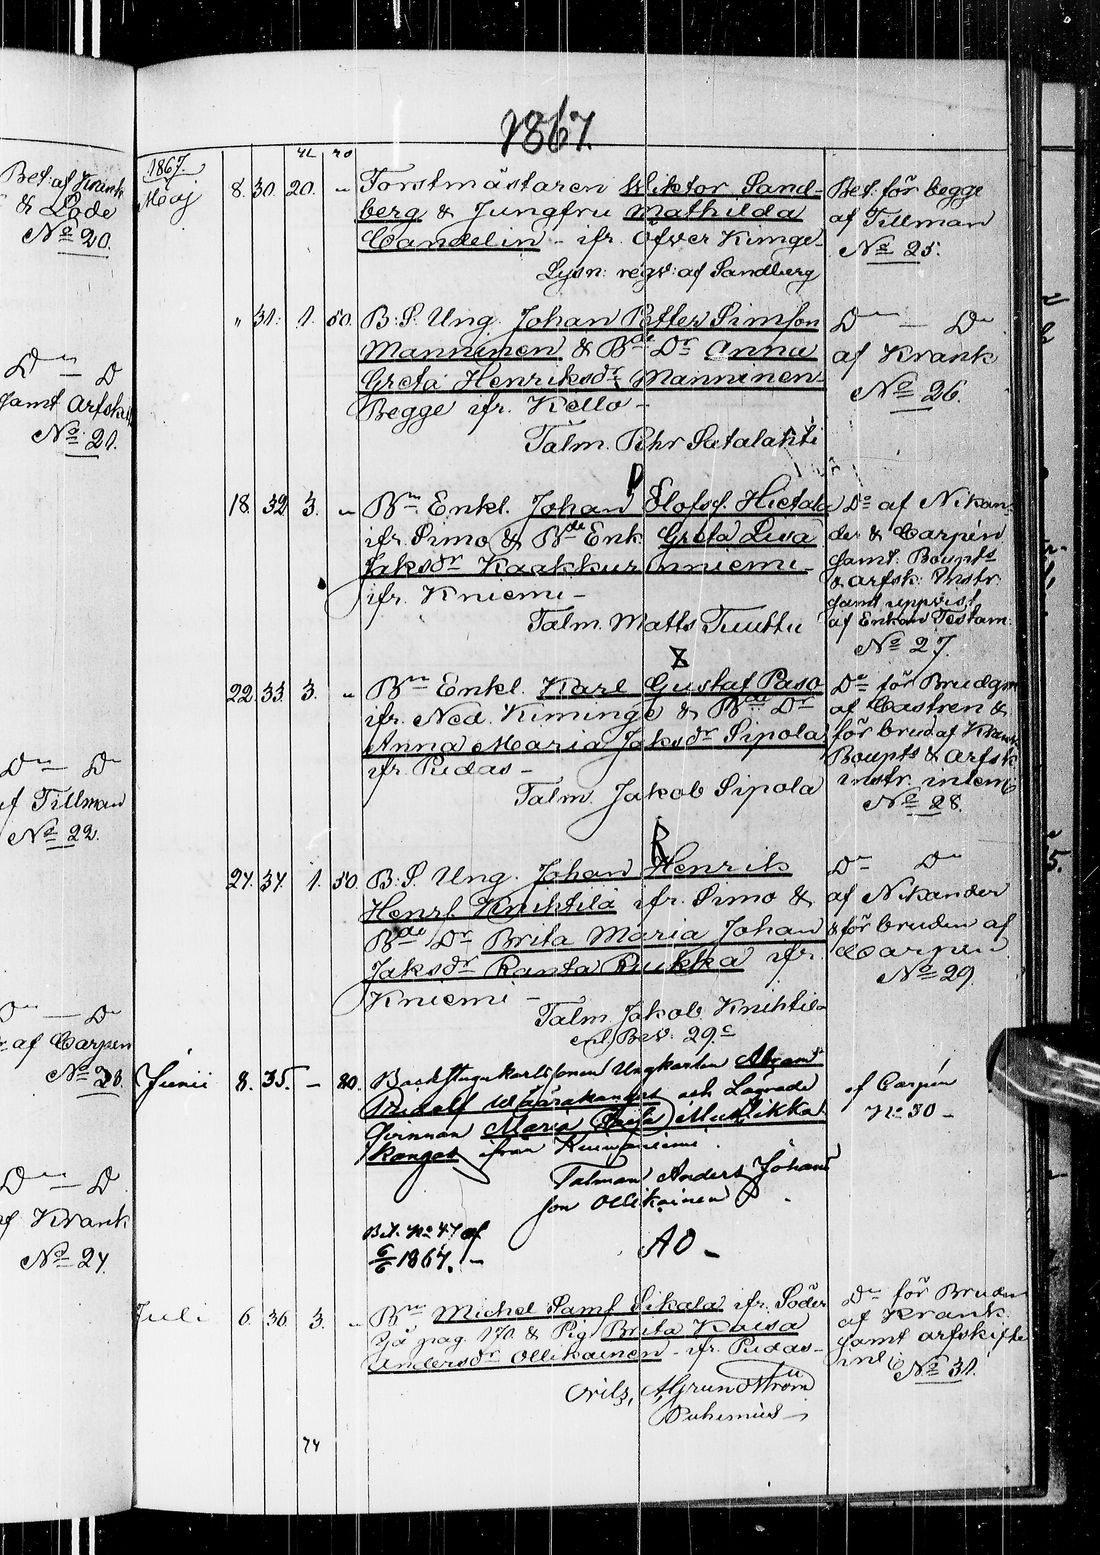 1867.
Bet. af Krank
& Lode
No 20.
Dn — D
samt Arfskif
No 21.
Dn — Dn
af Tillman
No 22.
Dn — Dn
af Carpen
No 23.
Dn — D
af Krank
No 24.
42 20
1867.
Maj 8. 30. 20. „ Forstmästaren Wiktor Sand-
berg & Jungfru Mathilda
Candelin – ifr. Öfver Kimge-
Lysn: regv: af Sandberg
Bet. för begge
af Tillman
No 25.
„ 31. 1. 50. B. S. Ung. Johan Petter Simson
Manninen & Bde Dr Anna
Greta Henriksdr Manninen
Begge ifr. Kello –
Talm. Pehr Sietalahti
Dn — Dn
af Krank
No 26.
18. 32. 3. „ Bn Enkl. Johan Olofsf. Hietala
ifr. Simo & Bde Enk. Greta Lisa
Jaksdr Kaakkurinniemi –
ifr. Kniemi –
Talm. Matts Tuuttu
Do af Nikan-
der & Carpén
samt: Boupts
& arfsk: Instr.
samt uppvist
af Enkan Testam:
No 27.
22. 33. 3. „ Bn Enkl. Karl Gustaf Paso
ifr. Ned. Kiminge & Bde Dr
Anna Maria Jaksdr Sipola
ifr. Pudas –
Talm. Jakob Sipola
Do för Brudgm
af Castren &
för brud af Krank
Boupts & arfsk
instr. intem
No 28.
R
24. 34. 1. 50. B. S. Ung. Johan Henrik
Henrs. Knihtilä ifr. Simo &
Bde Dr Brita Maria Johan
Jaksdr Ranta Rukka ifr.
Kniemi –
Talm. Jakob Knihtilä
Bev. 29c
Dn Dn
af Nikander
& för bruden af
Carpen
No 29.
Junii 8. 35. – 80. Backstugukarlssonen Ungkarlen Abram
Rudolf Wäärakangas och Lagvade
Qvinnan Maria Kaisa Mustikka
kangas ifrån Kuivaniemi.
Talman Anders Johans
son Ollikainen
Bet. No 47 af
6/6 1867. –
AO –
af Carpén
No 30 –
Juli 6. 36. 3. „ Bn Michel Samf Sikala ifr. Söder
pag. 170 & Pig. Brita Kaisa
Andersdr Ollikainen – ifr. Pudas –
Nils, A. Grundström
Puhenius –
Dn för Bruden
af Krank.
samt arfskifte
No 31.
74